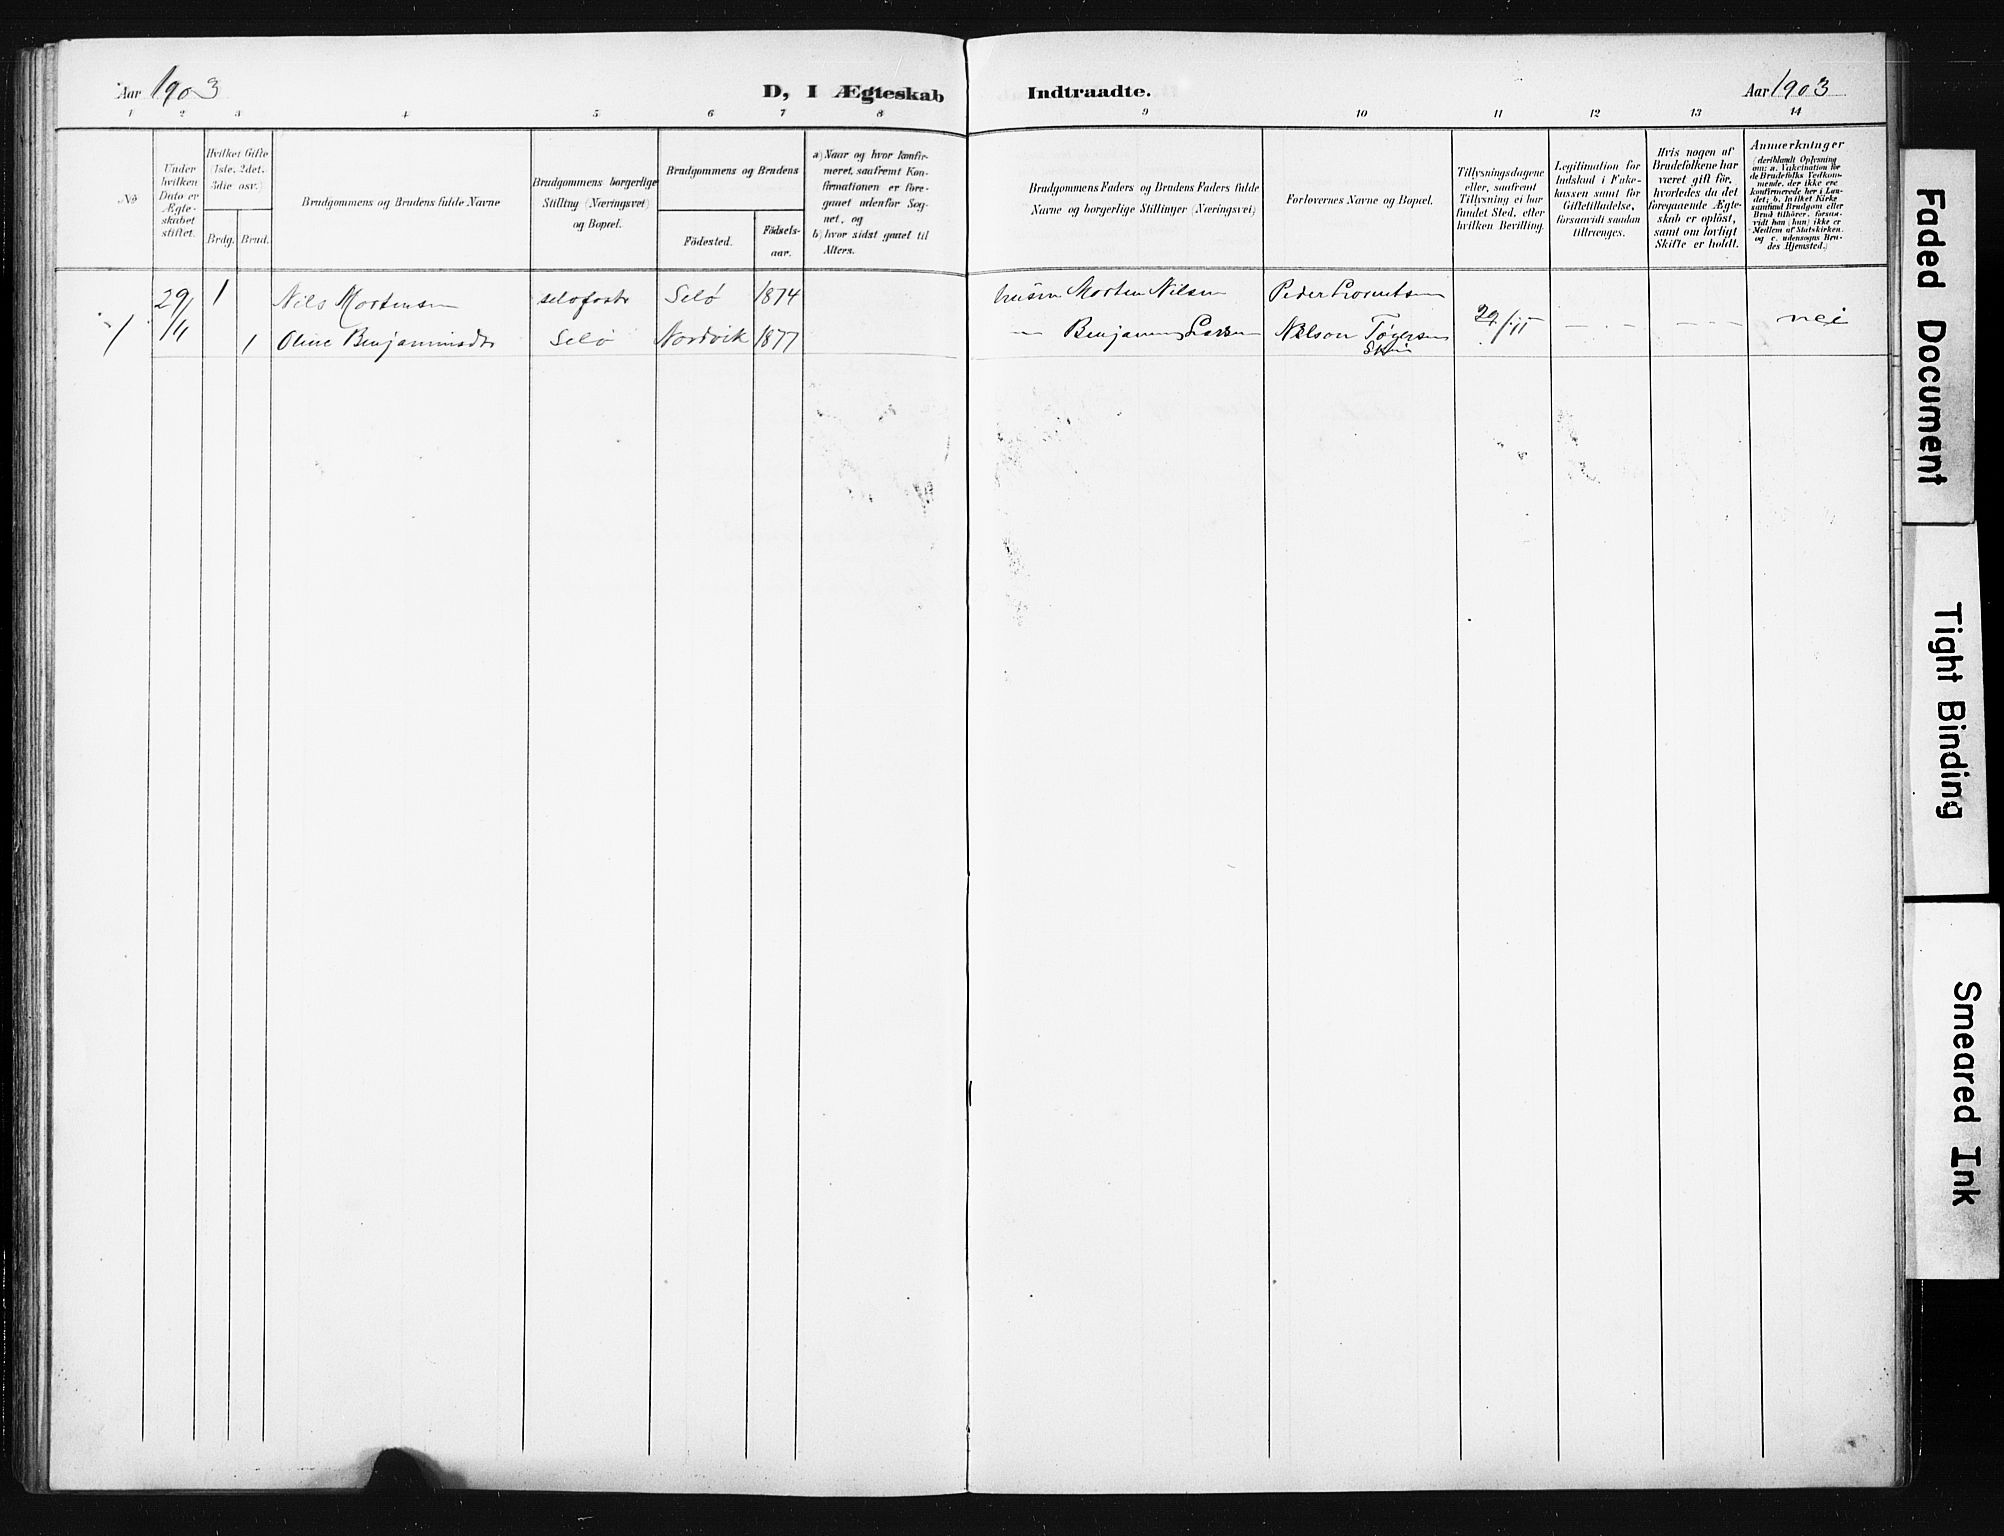 Aar 1903
D, I Ægteskab Indtraadte.
Aar 1903
1 2 3 4 5 6 7 8 9 10 11 12 13 14
No
Under hvilken Dato er Ægteskabet stiftet.
Hvilket Gifte (1ste, 2det, 3die osv.)
Brdg. Brud.
Brudgommens og Brudens fulde Navne
Brudgommens borgerlige Stilling (Næringsvei) og Bopæl.
Brudgommens og Brudens
Födested.
Födselsaar.
a) Naar og hvor konfirmeret, saafremt Konfirmationen er foregaaet udenfor Sognet, og
b) hvor sidst gaaet til Alters.
Brudgommens Faders og Brudens Faders fulde Navne og borgerlige Stillinger (Næringsvei)
Forlovernes Navne og Bopæl.
Tillysningsdagene eller, saafremt Tillysning ei har fundet Sted, efter hvilken Bevilling.
Legitimation for Indskud i Enkekassen samt for Giftetilladelse, forsaavidt saadan tiltrænges.
Hvis nogen af Brudefolkene har været gift för, hvorledes da det foregaaende Ægteskab er oplöst, samt om lovligt Skifte er holdt.
Anmærkninger (deriblandt Oplysning om: a. Vakcination for de Brudefolks Vedkommende, der ikke ere konfirmerede her i Landet; b. hvilket Kirkesamfund Brudgom eller Brud tilhörer, forsaavidt han (hun) ikke er Medlem af Statskirken, og c. udensogns Brudes Hjemsted.)
29/ 1 Nils Mortensen Selø 1874 Morten Nilsen Peder
1 /11 1 Oline Benjaminsdtr Selø Nordvik 1877 — Benjamin Larsen Nilson Tøgersen 22/11 — . — — - — nei
Faded Document
Tight Binding
Smeared Ink